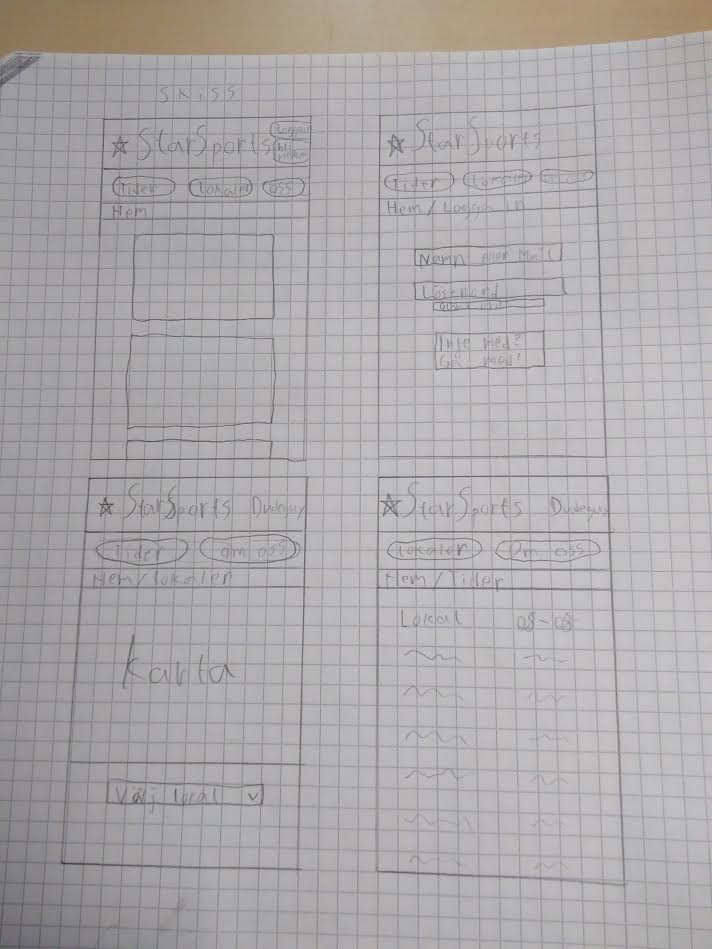 SKISS
☆ StarSports
Logga in
Bli medlem
Tider Lokaler oss
Hem
☆ StarSports
Tider Lokaler
Hem / Logga in
Namn eller Mail
Lösenord
Inte med?
Gå med!
☆ StarSports Dudeguy
Tider om oss
Hem/lokaler
Karta
Välj local v
☆ StarSports Dudeguy
Lokaler Om oss
Hem/Tider
Lokal 08-08